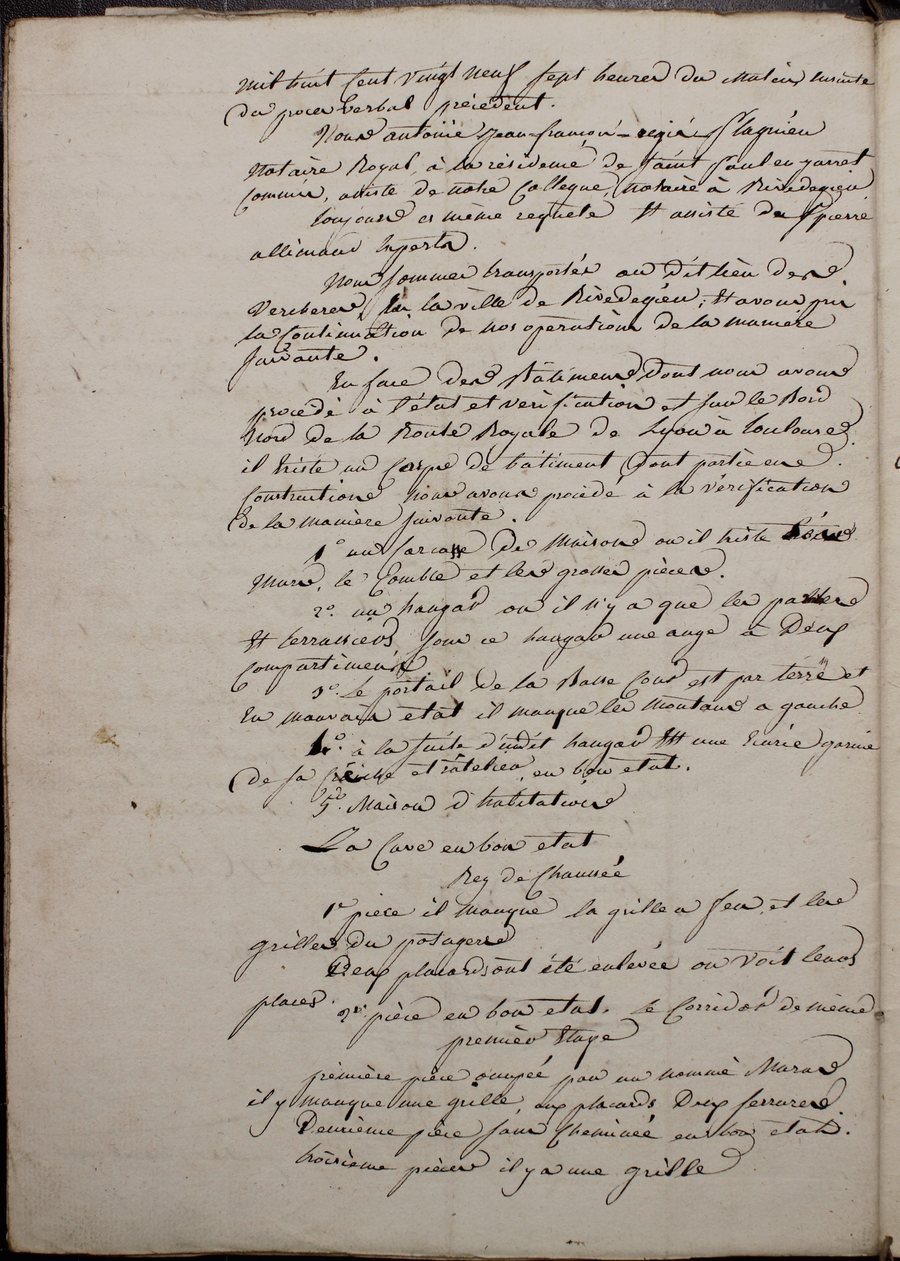 mil huit cent vingt neuf sept heures du matin ensuite
du procer verbal précédent.
Nous antoine jean françois
Notaire Royal, à la résidence de saint paul en jarret
Commis, assisté de notre Collegue, Notaire à Rivedegier
toujours es même requete et assisté de pierre
allimand Experts.
Nous sommes transportés au dit lieu des
Verchere, la ville de Rivedegier, et avons pris
la Continuation de nos operations de la maniere
suivante.
En face des Bâtimens dont nous avons
procédé à l'état et verification et sur le Bord
Nord de la Route Royale de Lyon à toulouse
il Existe un Corps de bâtiment dont partie en
Constructions Nous avons procédé à la vérification
de la manière suivante.
1° un Carcasse de Maisons ou il Existe
Murs, le Comble et les grosses pièces.
2° un hangar ou il n'y a que les
Et terrassiers sous ce hangar une auge à Deux
Compartimens
3° Le portail de la Basse Cour est par terre et
En mauvais etat il manque les montans a gauche
4° à la suite d'udit hangar Est une Ecurie garnie
de sa Crèche et ratelier en bon etat.
5° Maison d'habitations
La Cave en bon etat
Rey de Chaussée
1e piece il manque la grille a feu, et les
grilles du potagers
Deux placards ont été enlevée on voit leurs
places.
2e pièce en bon etat. Le Corridor de même
premier Etage
première pièce occupée par un nommé
il y manque une grille, aux placards Deux serrures.
Deuxième pièce sans Cheminée en bon etat.
troisieme pièce il y a une grille